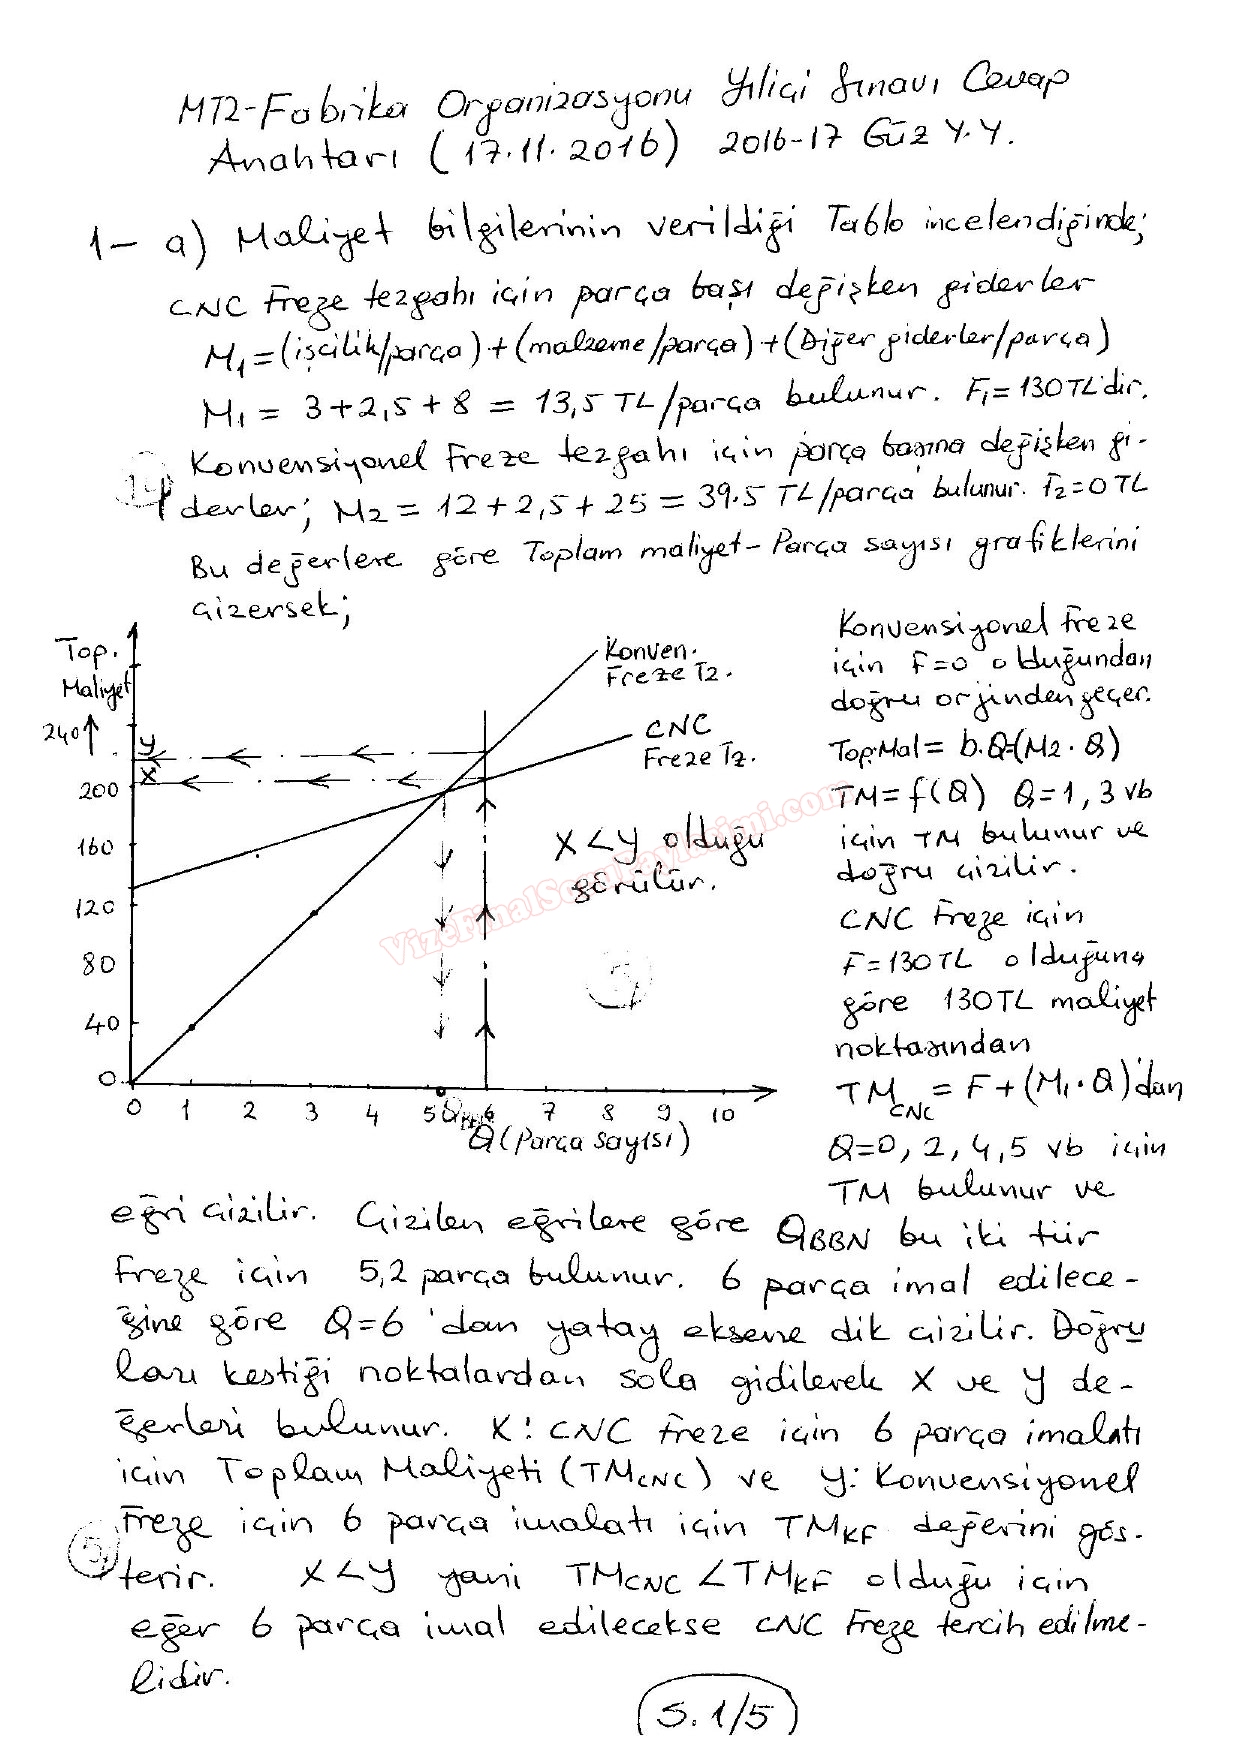 MT2-Fabrika Organizasyonu Yıliçi Sınavı Cevap
Anahtarı (17.11.2016) 2016-17 Güz Y.Y.
1- a) Maliyet bilgilerinin verildiği Tablo incelendiğinde;
CNC Freze tezgahı için parça başı değişken giderler
M1=(işçilik/parça)+(malzeme/parça)+(Diğer giderler/parça)
M1 = 3+2,5+8 = 13,5 TL/parça bulunur. F1=130TL'dir.
Konvensiyonel Freze tezgahı için parça başına değişken gi-
derler; M2 = 12+2,5+25 = 39.5 TL/parça bulunur. F2=0TL
Bu değerlere göre Toplam maliyet-Parça sayısı grafiklerini
çizersek;
Top.
Maliyet
240
200
160
120
80
40
0
y
x
Konven.
Freze Tz.
CNC
Freze Tz.
x<y olduğu
görülür.
0 1 2 3 4 5 6 7 8 9 10
Q (Parça sayısı)
Konvensiyonel Freze
için F=0 olduğundan
doğru orjinden geçer.
Top.Mal= b.Q=(M2.Q)
TM=f(Q) Q=1, 3 vb
için TM bulunur ve
doğru çizilir.
CNC Freze için
F=130TL olduğuna
göre 130TL maliyet
noktasından
TMCNC = F+(M1.Q)'dan
Q=0, 2, 4, 5 vb için
TM bulunur ve
eğri çizilir. Çizilen eğrilere göre QBBN bu iki tür
Freze için 5,2 parça bulunur. 6 parça imal edilece-
ğine göre Q=6 'dan yatay eksene dik çizilir. Doğru
ları kestiği noktalardan sola gidilerek x ve y de-
ğerleri bulunur. x: CNC Freze için 6 parça imalatı
için Toplam Maliyeti (TMCNC) ve y: Konvensiyonel
Freze için 6 parça imalatı için TMKF değerini gös-
terir. x<y yani TMCNC < TMKF olduğu için
eğer 6 parça imal edilecekse CNC Freze tercih edilme-
lidir.
S. 1/5
VizeFinalSoruPaylasimi.com